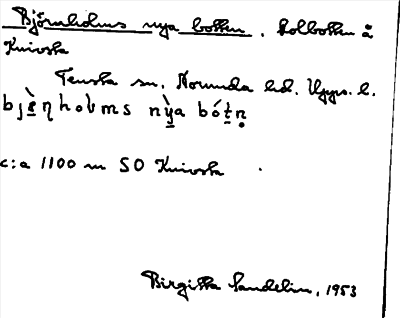 Björnholms nya botten. Kolbotten å
Knivsta
Tensta sn. Norunda hd. Upps. l.
bjɛ̀ṇhoḷms nỳa bótṇ
c:a 1100 m SO Knivsta
Birgitta Sandelin, 1953